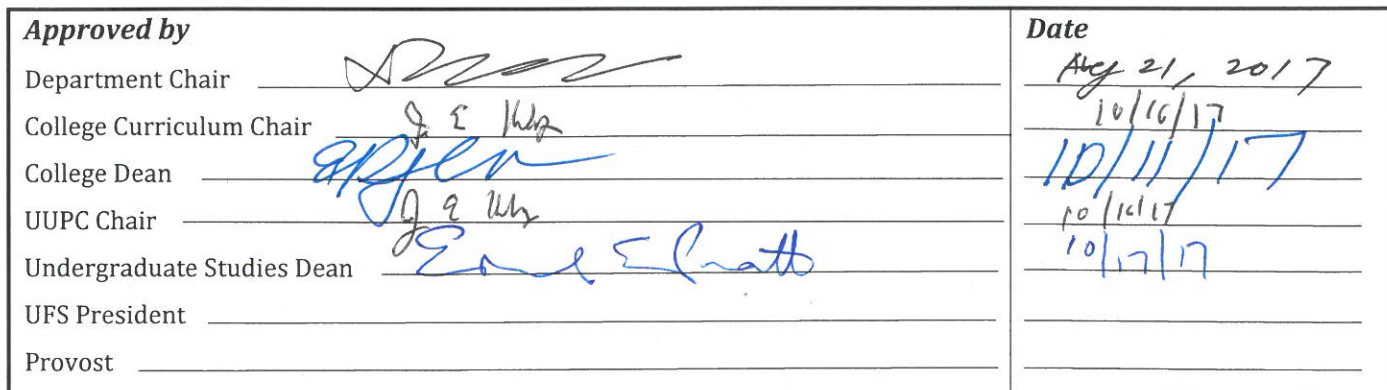 Approved by Date
Department Chair Aug 21, 2017
College Curriculum Chair J E 10/16/17
College Dean 10/11/17
UUPC Chair J E 10/16/17
Undergraduate Studies Dean 10/17/17
UFS President
Provost